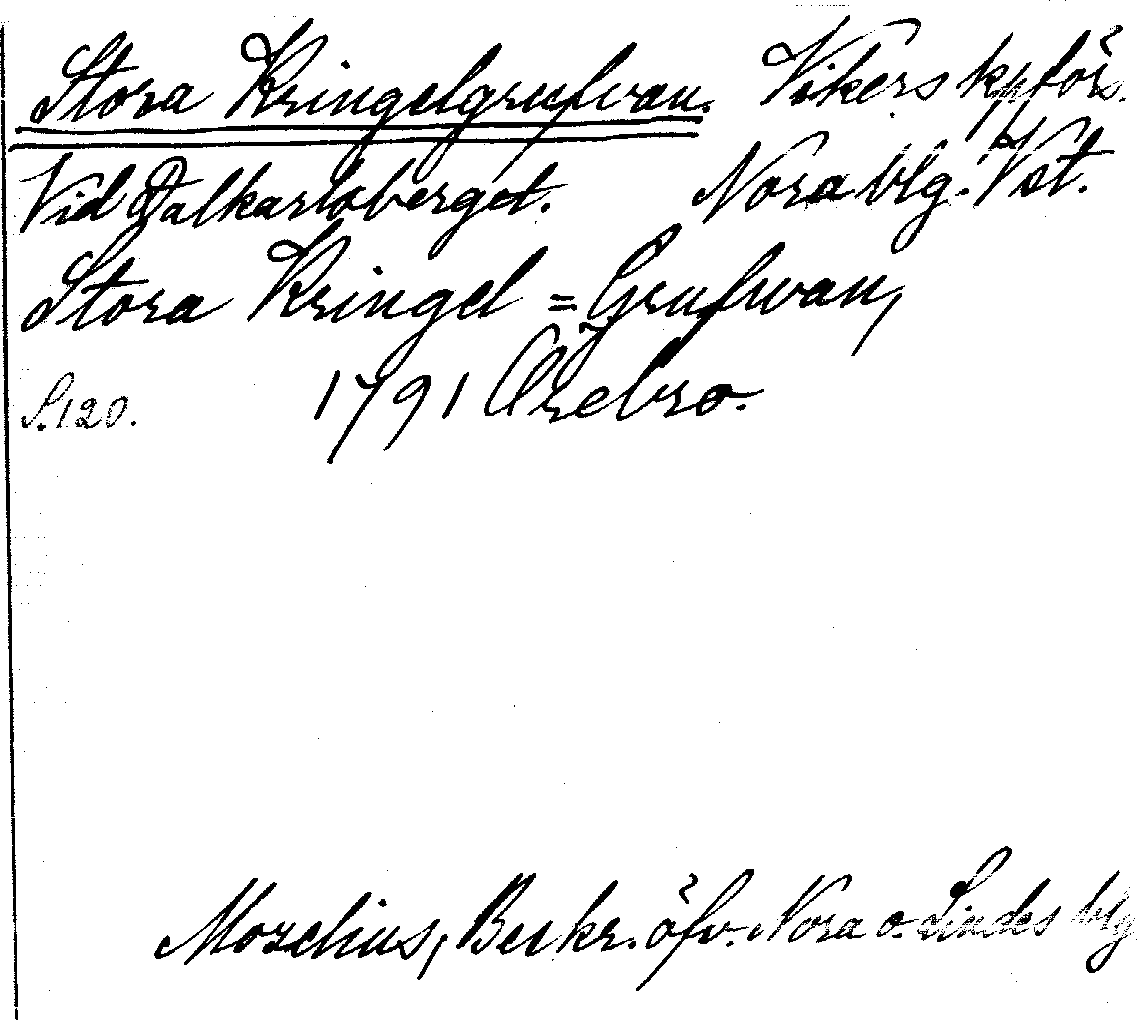 Stora Kringelgrufvan. Vikers kpförs.
Vid Dalkarlsberget. Nora blg. Vst.
Stora Kringel = Grufwan,
S. 120. 1791 Örebro.
Moselius, Beskr. öfv. Nora o. Lindes blg